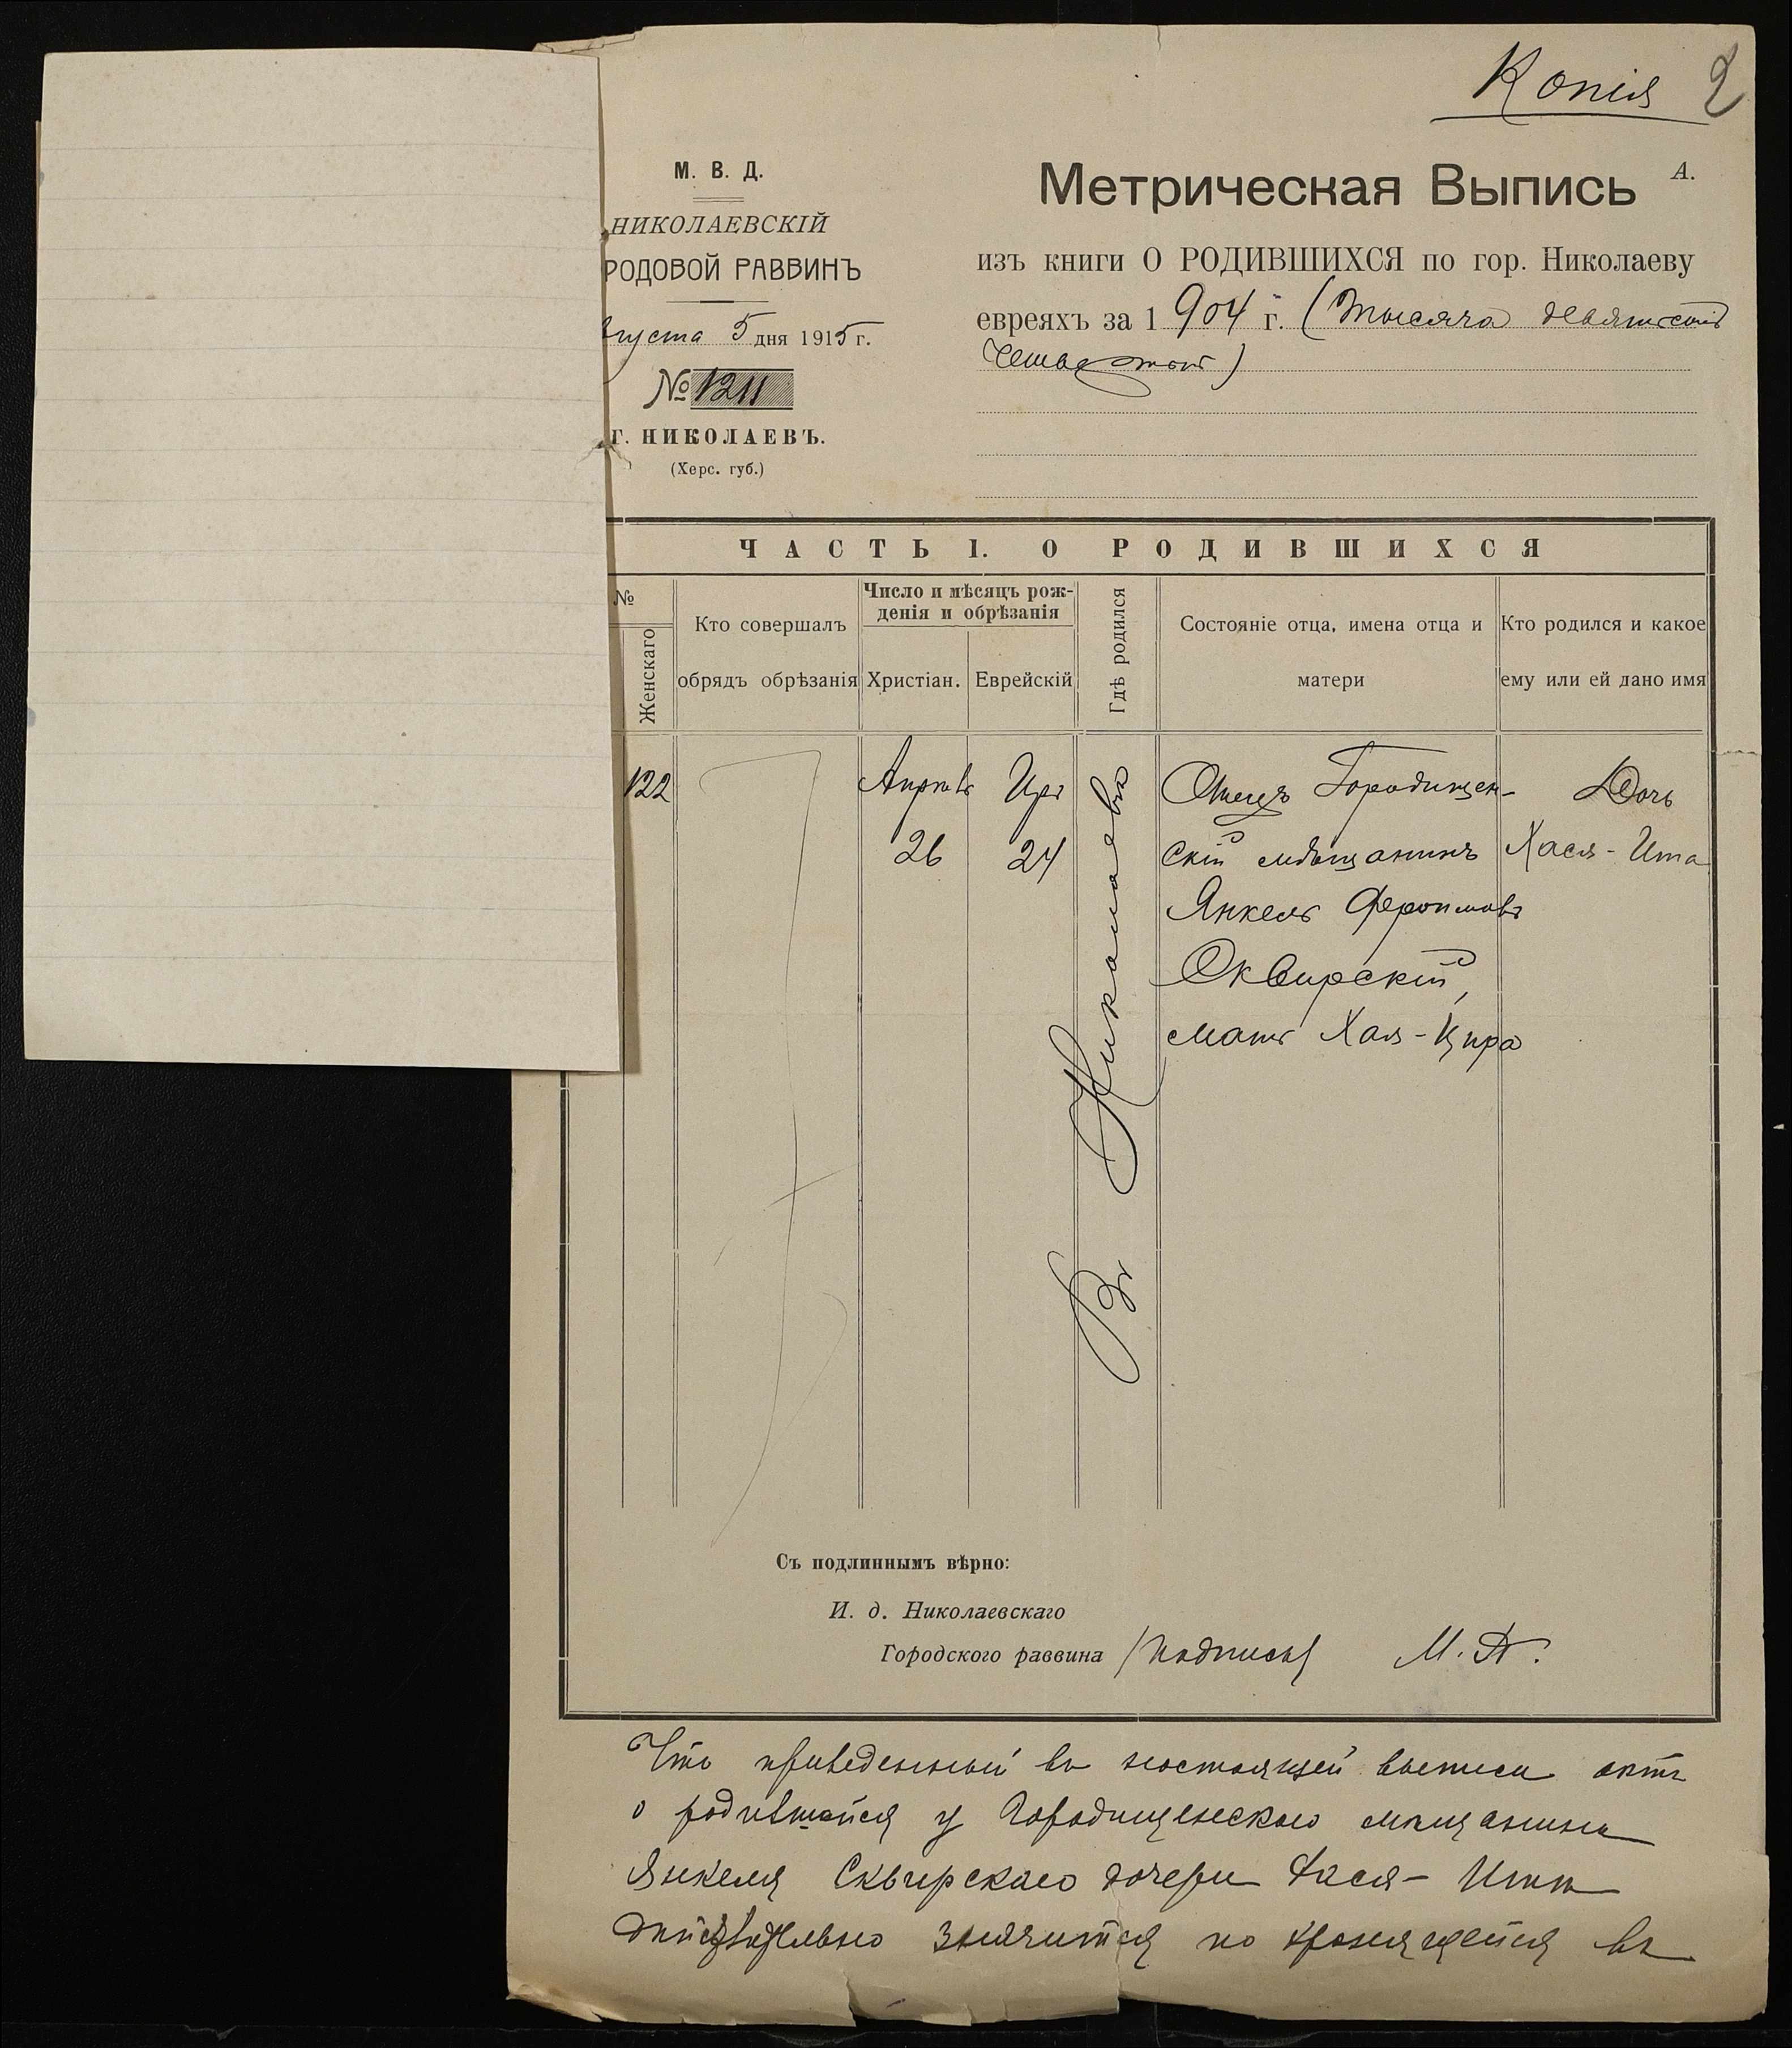 Копія 2
М. В. Д.
НИКОЛАЕВСКІЙ
РОДОВОЙ РАВВИНЪ
вгуста 5 дня 1915 г.
№ 1211
Г. НИКОЛАЕВЪ.
(Херс. губ.)
Метрическая Выпись А.
изъ книги О РОДИВШИХСЯ по гор. Николаеву
евреяхъ за 1904 г. (Тысяча девятьсотъ
четвертый)
ЧАСТЬ I. О РОДИВШИХСЯ
№
Женскаго
Кто совершалъ
обрядъ обрѣзанія
Число и мѣсяцъ рож-
денія и обрѣзанія
Христіан.
Еврейскій
Гдѣ родился
Состояніе отца, имена отца и
матери
Кто родился и какое
ему или ей дано имя
122
Апрѣль
26
Иръ
24
Въ Николаевѣ
Отецъ Городищен-
скій мѣщанинъ
Янкель
Сквирскій,
мать Хая-Цира
Дочь
Хася-Ита
Съ подлиннымъ вѣрно:
И. д. Николаевскаго
Городского раввина (подпись) М. П.
Что приведенный въ настоящей выписи актъ
о родившейся у Городищенскаго мѣщанина
Янкеля Сквирскаго дочери Хася-Итта
дѣйствительно значится по хранящейся въ